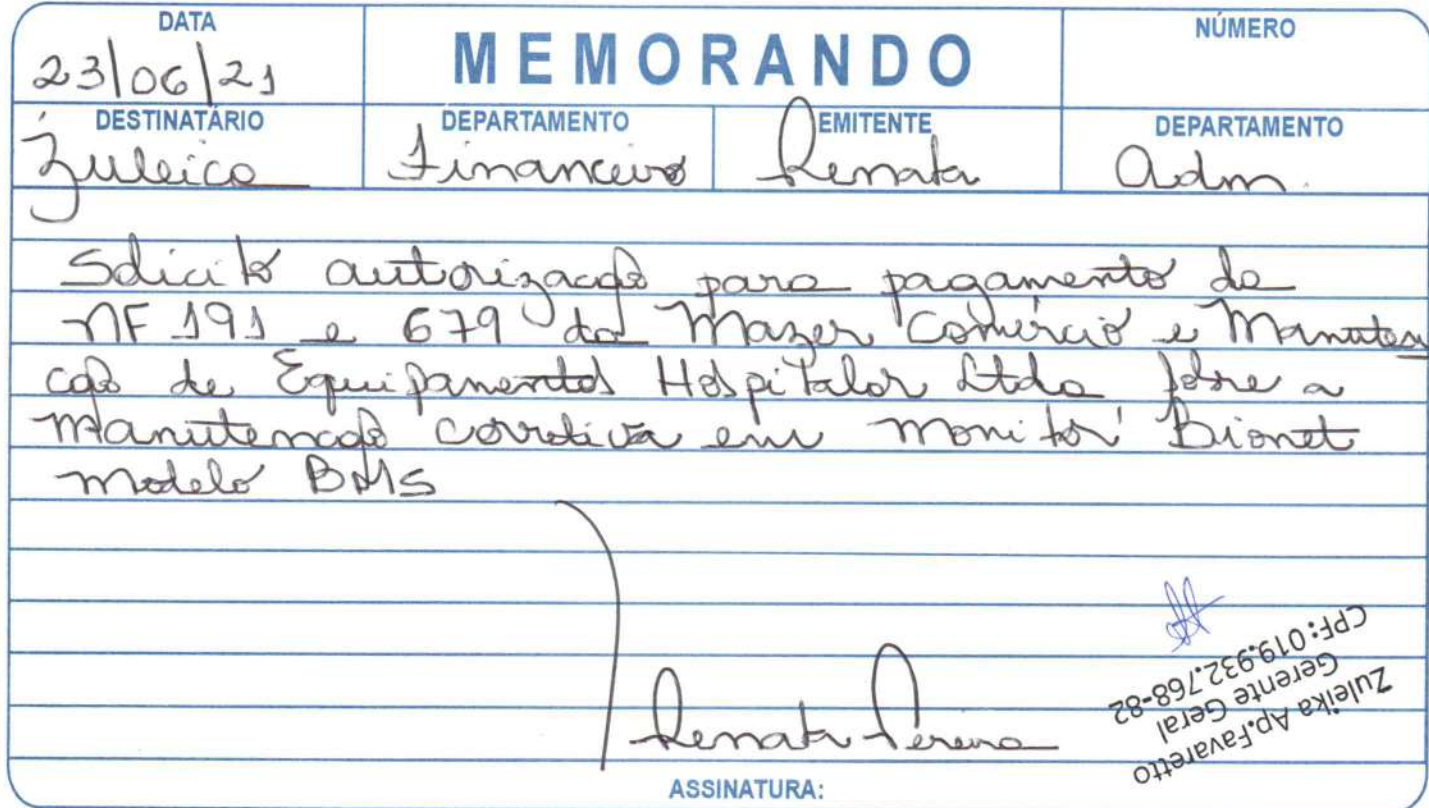 DATA
MEMORANDO
NÚMERO
23/06/21
DESTINATÁRIO
DEPARTAMENTO
EMITENTE
DEPARTAMENTO
Zuleica
Financeiro
Renata
Adm.
Solicito autorização para pagamento da
NF 191 e 679 da Mazer Comércio e Manuten
ção de Equipamentos Hospitalar Ltda sobre a
manutenção corretiva em monitor Bionet
modelo BM5
Renata Pereira
Zuleika Ap.Favaretto
Gerente Geral
CPF:019.932.768-82
ASSINATURA: